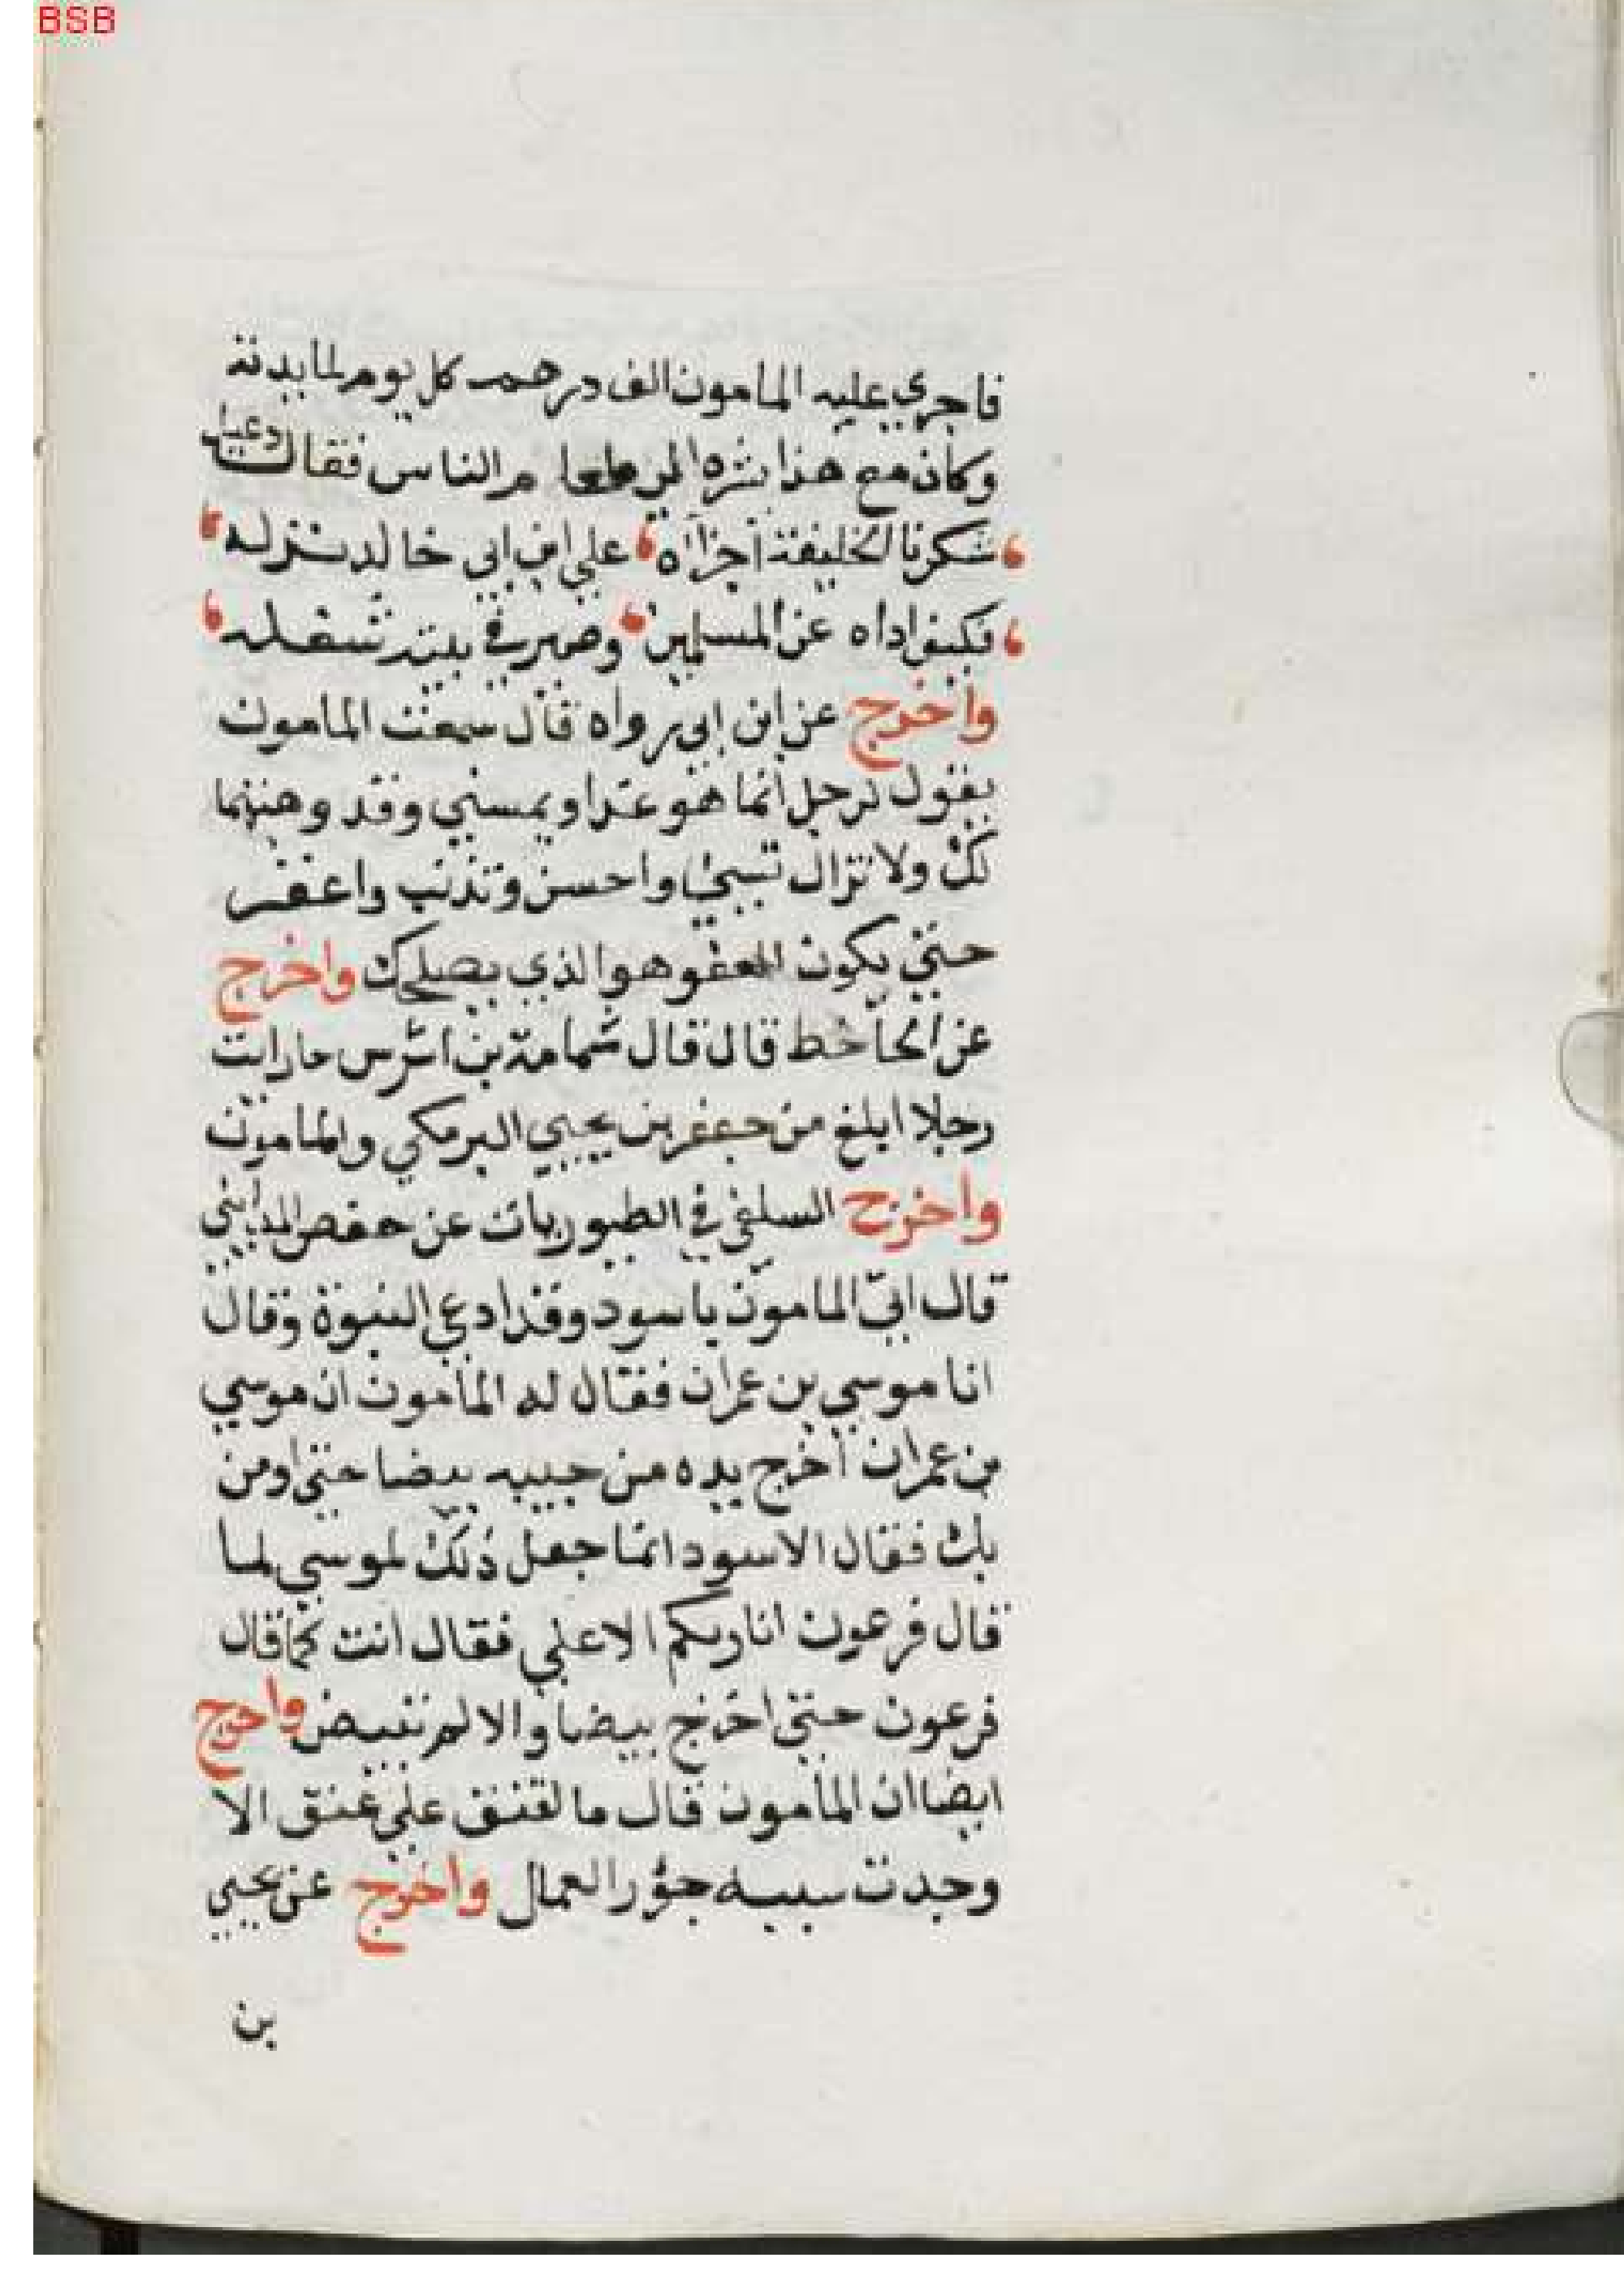 BSB
فاجري عليه المامون الف درهم كل يوم لمايدته
وكان مع هذا يشره الي طعام الناس فقال دعبل
شكرنا الخليفة اجراه علي ابن ابي خالد نزله
فكف اداه عن المسلمين وصير في بيته شغله
واخرج عن ابن ابي رواه قال سمعت المامون
يقول لرجل انما هو غدر او يمسني وقد وهبتهما
لك ولا تزال تسيئ واحسن وتذنب واغفر
حتي يكون العفو هو الذي يصلحك واخرج
عن الحاخط قال قال ثمامة بن اشرس ما رايت
رجلا ابلغ من جعفر بن يحيي البرمكي والمامون
واخرج السلفي في الطيوريات عن حفص المدايني
قال اتي المامون باسود وقد ادعي النبوة وقال
انا موسي بن عمران فقال له المامون ان موسي
بن عمران اخرج يده من جيبه بيضا حتي اومن
بك فقال الاسود انما جعل ذلك لموسي لما
قال فرعون انا ربكم الاعلي فقال انت كما قال
فرعون حتي اخرج بيضا والا لم تبيض واخرج
ايضا ان المامون قال ما انفتق علي فتق الا
وجدت سببه جور العمال واخرج عن يحيي
بن